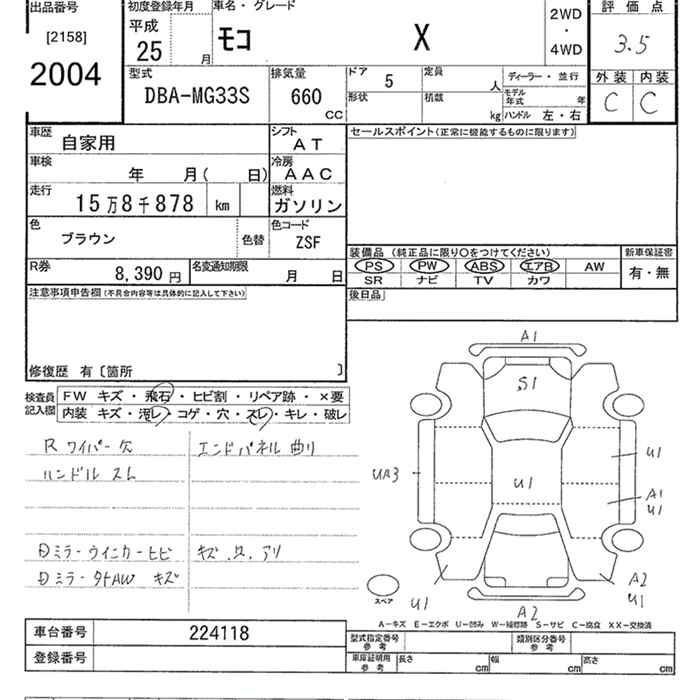 出品番号
[2158]
2004
初度登録年月
平成
25 月
車名・グレード
モコ X
2WD
・
4WD
評価点
3.5
外装 内装
C C
型式
DBA-MG33S
排気量
660 CC
ドア 5
定員 人
形状
積載 kg
ディーラー・並行
モデル年式 年
ハンドル 左・右
車歴 自家用
シフト AT
車検 年 月( 日)
冷房 AAC
走行 15万8千878 km
燃料 ガソリン
色 ブラウン
色替
色コード ZSF
R券 8,390 円
名変通知期限 月 日
セールスポイント(正常に機能するものに限ります)
装備品 (純正品に限り〇をつけてください)
PS PW ABS エアB AW
SR ナビ TV カワ
新車保証書
有・無
後日品
注意事項申告欄(不具合内容等は具体的に記入して下さい)
修復歴 有〔箇所 〕
検査員記入欄
FW キズ・飛石・ヒビ割・リペア跡・×要
内装 キズ・汚レ・コゲ・穴・スレ・キレ・破レ
R ワイパー欠
エンドパネル曲り
ハンドルスレ
ミラーウインカーヒビ
ミラー
AW キズ
A1
S1
U1
UA3
U1
A1
U1
U1
A2
U1
A2
スペア
A-キズ E-エクボ U-凹み W-補修跡 S-サビ C-腐食 XX-交換済
車台番号 224118
登録番号
型式指定番号 参考
類別区分番号 参考
車庫証明用 参考
長さ cm
幅 cm
高さ cm